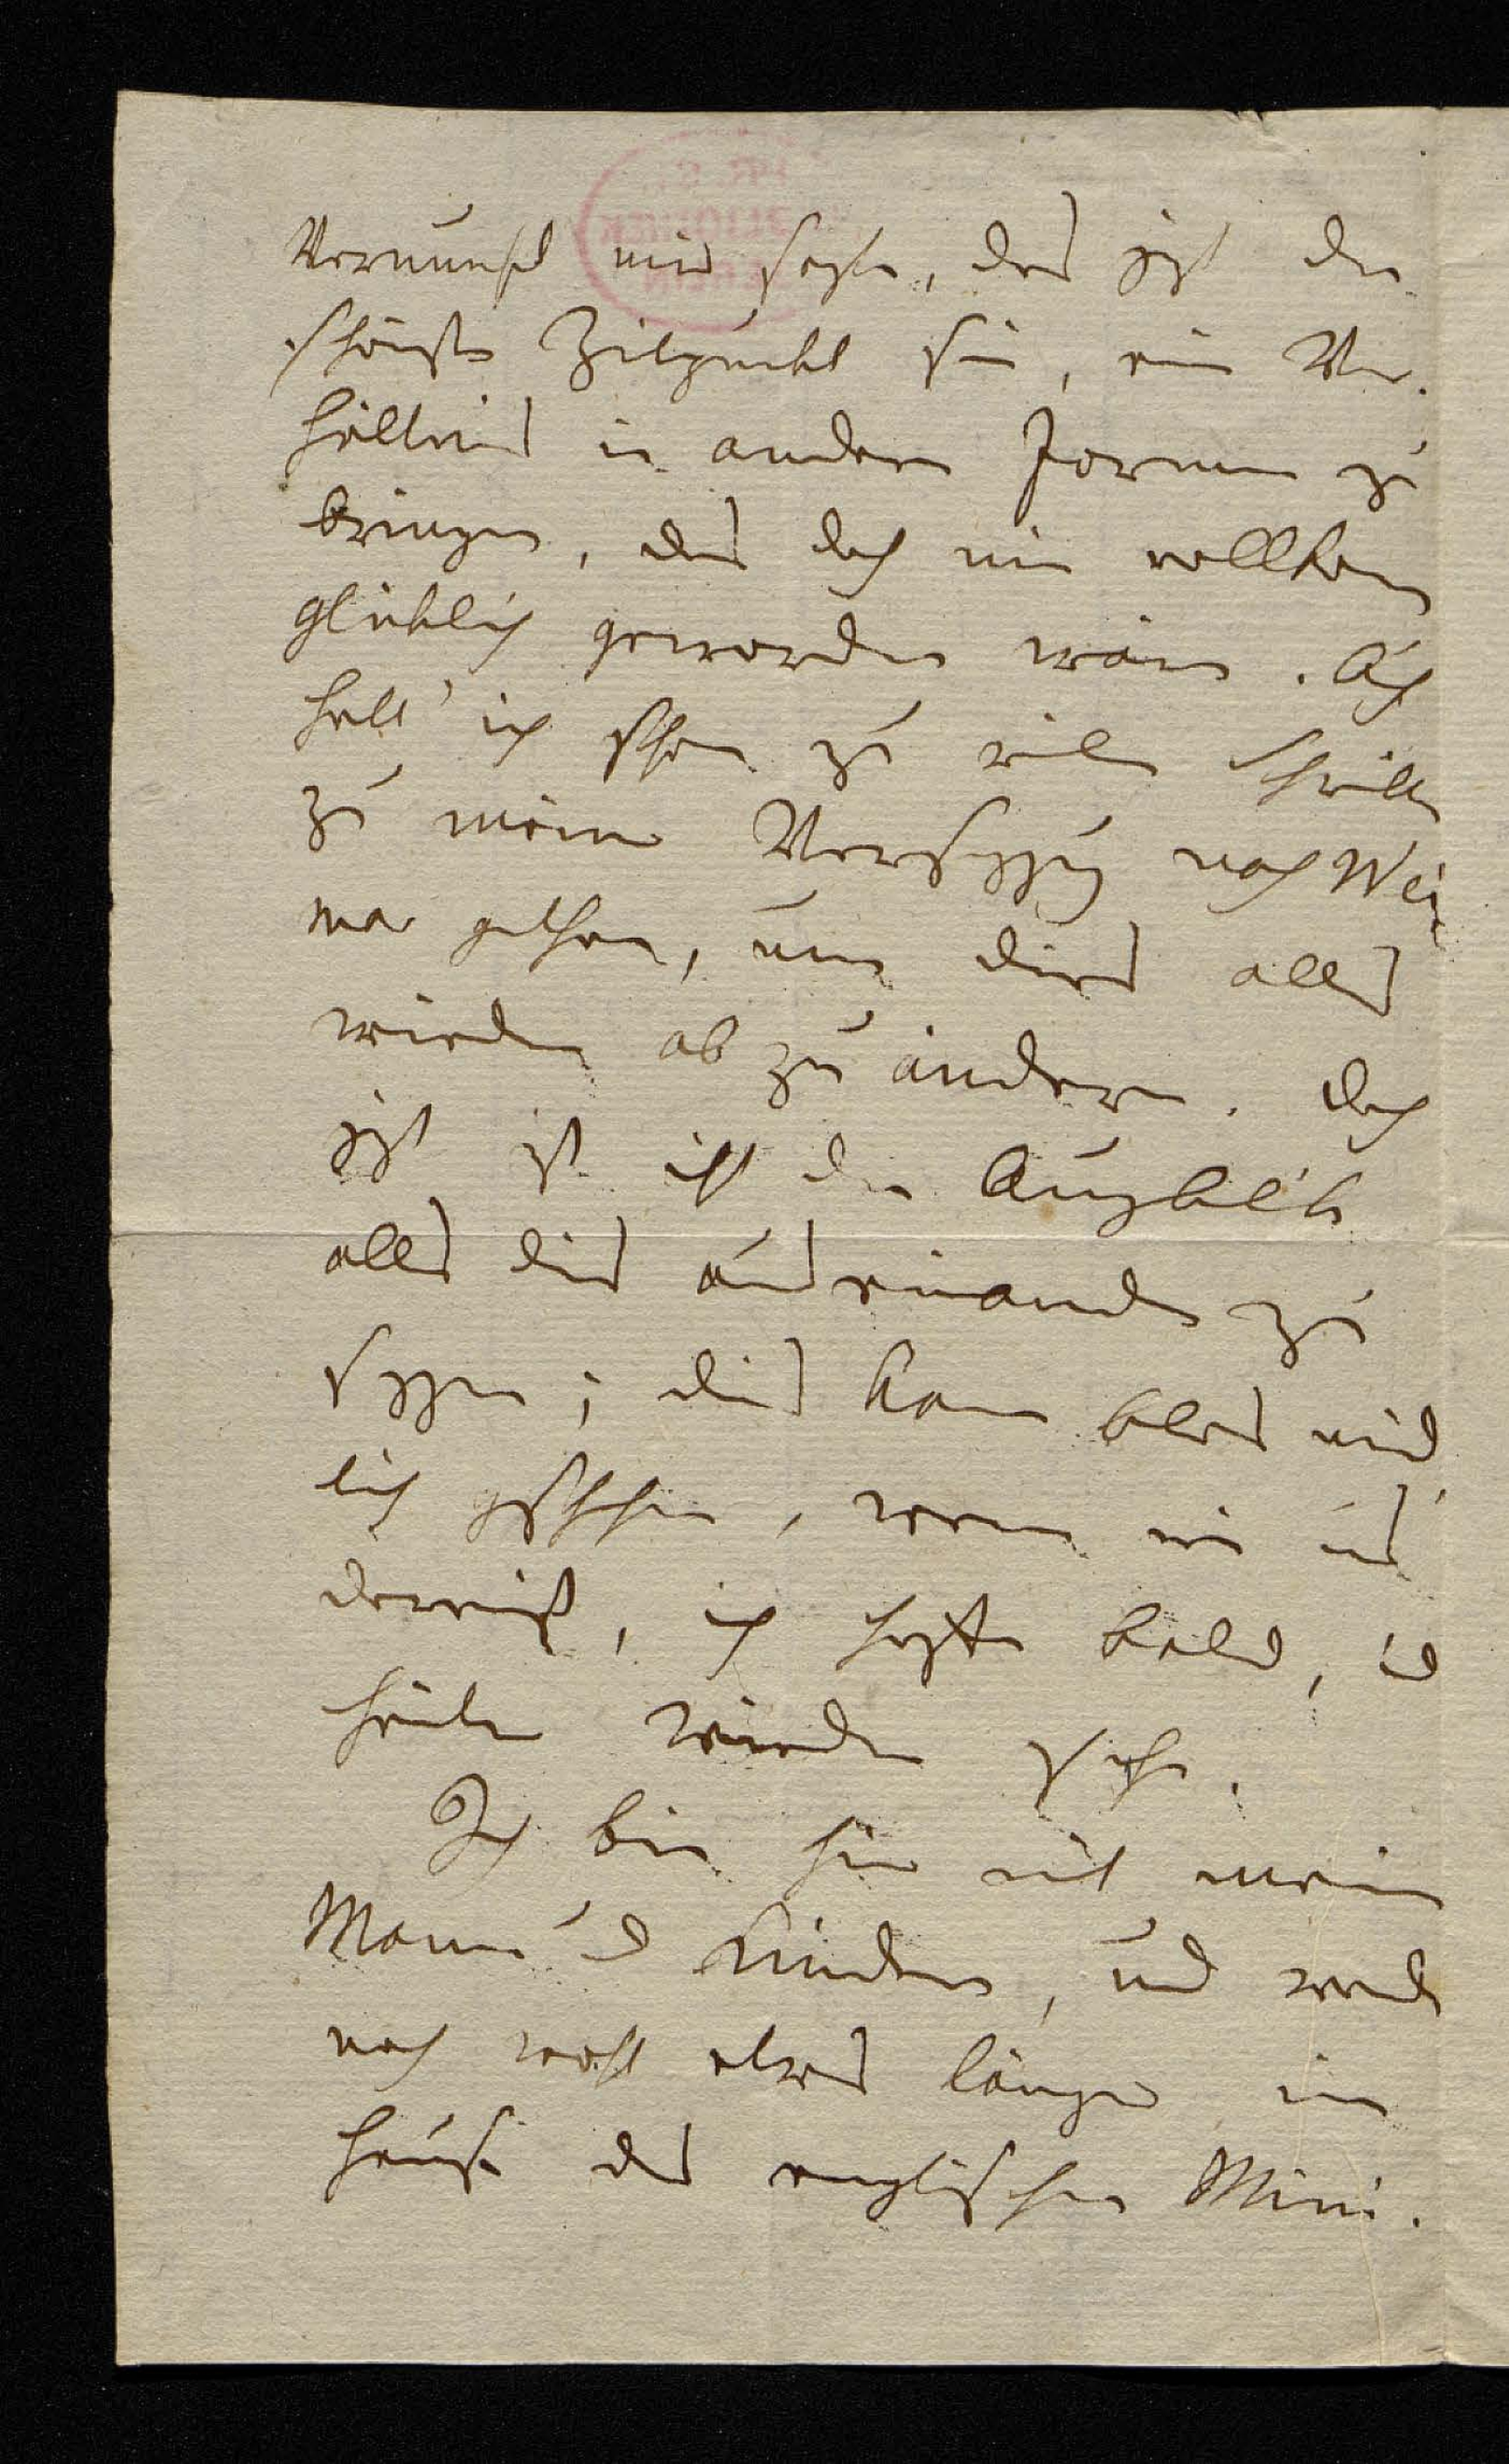 Vernunft mir sagte, das jzt der
schönste Zeitpunkt sei, ein Ver-
hältnis in andere Formen zu
bringen, das doch nie vollkom
glüklich geworden wäre. Auch
hatt' ich schon zu viele Schritte
zu meiner Versezzung nach Wei
mar gethan, um dies alles
wieder ab zu ändern. Doch
jzt ist nicht der Augenblik
alles dies auseinander zu
sezzen; dies kann blos münd
lich geschehen, wenn wir uns
dereinst, ich hoffe bald, und
heiter wieder sehen.
Ich bin hier mit meinem
Mann und Kindern, und werde
noch wohl etwas länger im
Hause des englischen Mini-